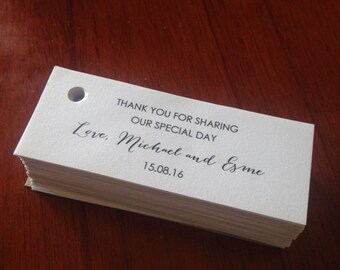 THANK YOU FOR SHARING
OUR SPECIAL DAY
Love, Michael and Esme
15.08.16